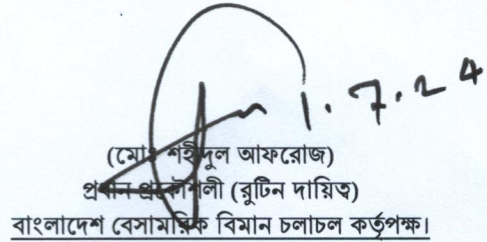 1.7.24
(মোঃ শহীদুল আফরোজ)
প্রধান প্রকৌশলী (রুটিন দায়িত্ব)
বাংলাদেশ বেসামরিক বিমান চলাচল কর্তৃপক্ষ।